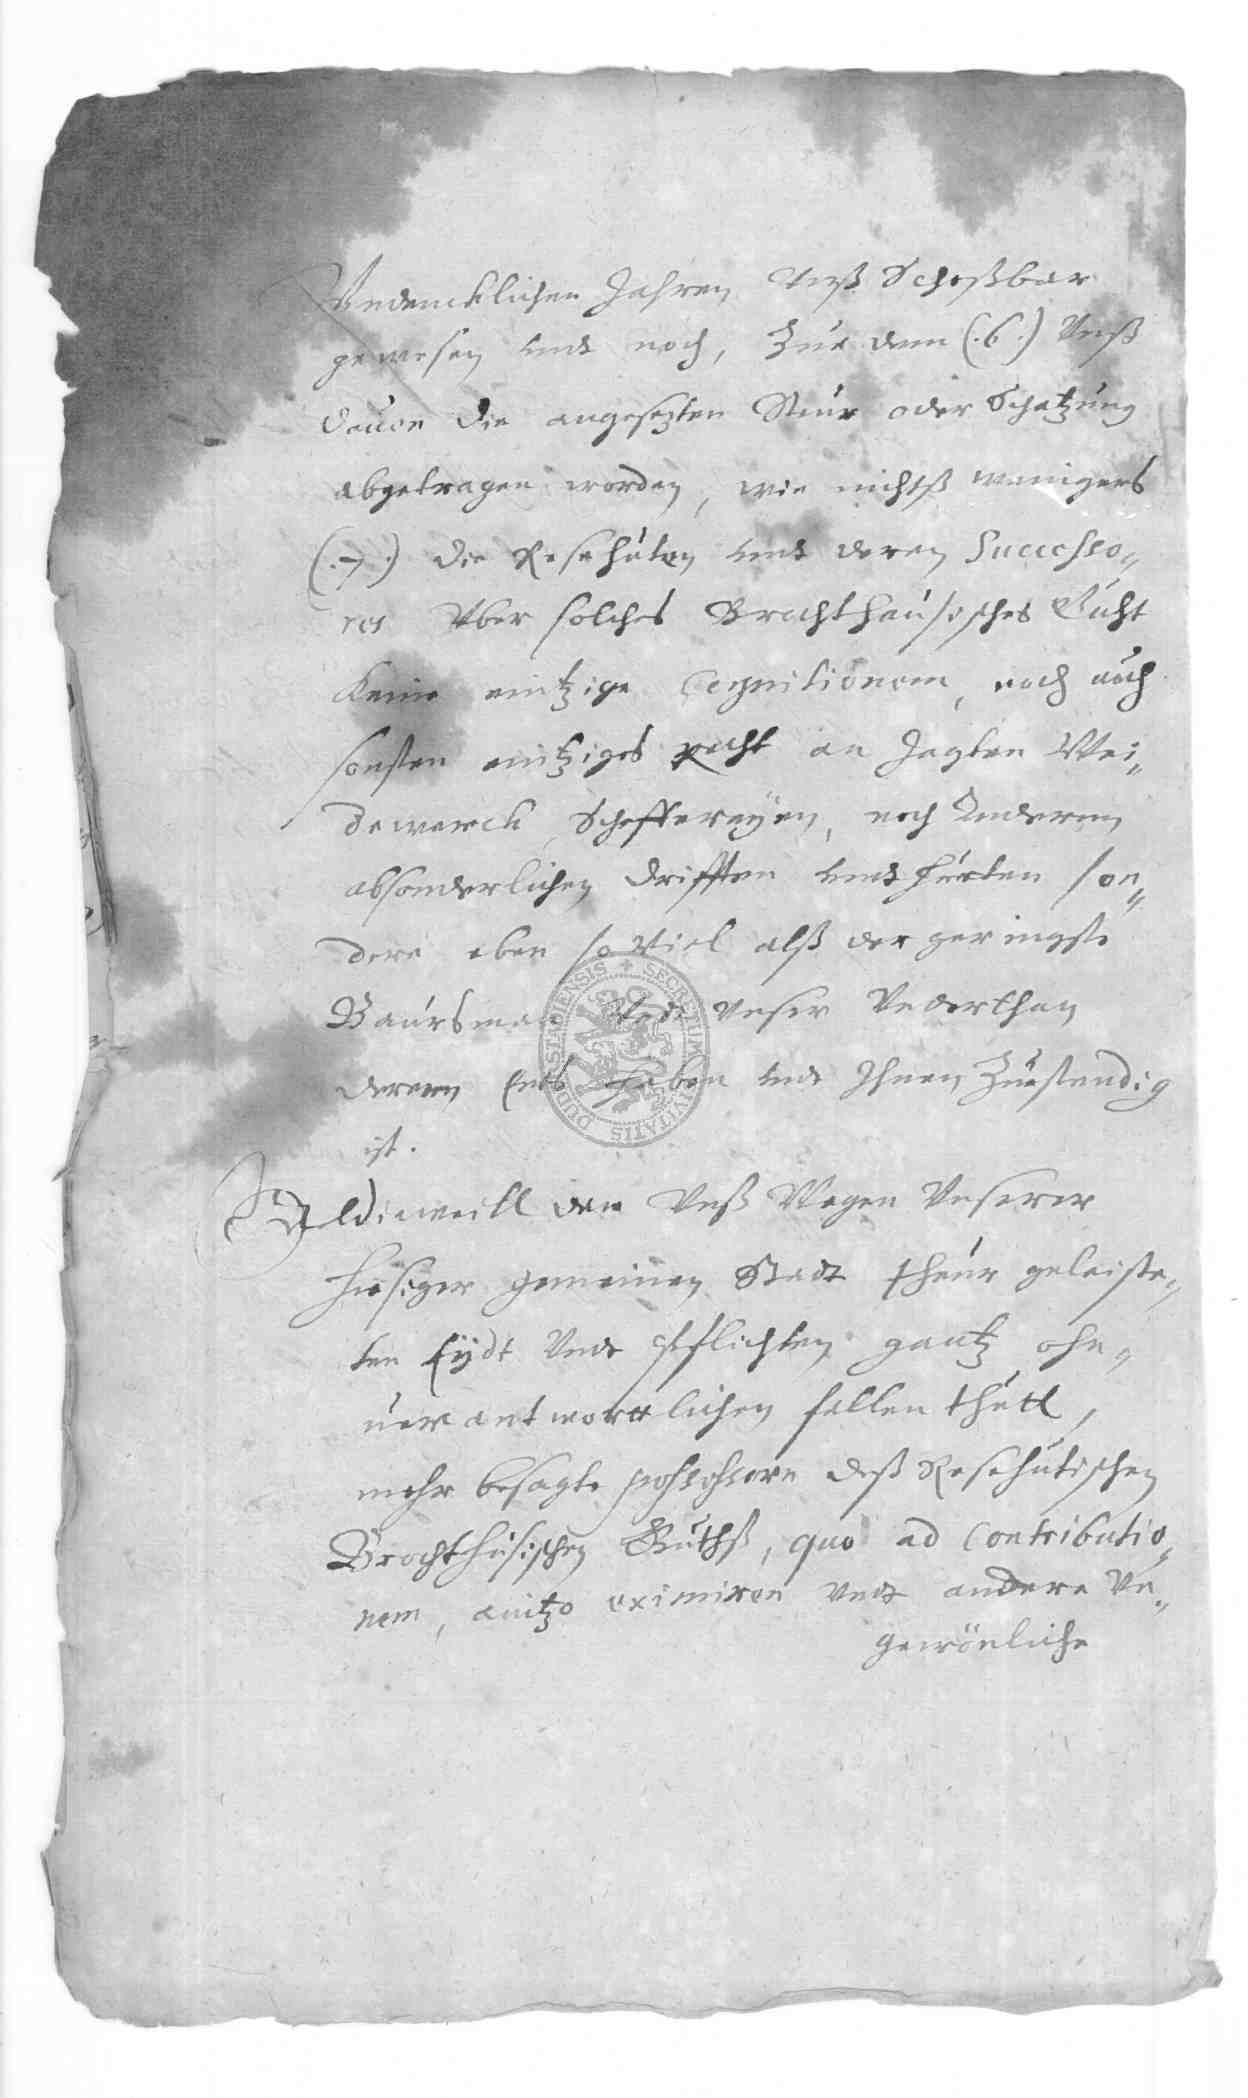 Undencklichen Jahren Unß Schoßbar
gewesen undt noch, Zue deme (.6.) Unß
dauon die angesezten Steur oder Schatzung
abgetragen worden, wie nichtß wenigers
(.7.) die Resehuten undt deren Successo„
res Vber solches Brachthausisches Guht
keine eintzige Cognitionem, noch auch
sonsten eintziges recht an Jagten Wei„
dewerck, Scheffereyen, noch Anderen
absonderlichen drifften undt hurten son„
dern eben so Viel alß der geringste
Baursman undt unser Underthan
deren Endts haben undt Ihnen Zustendig
ist.
Aldieweill den Unß Wegen Unserer
hiesiger gemeinen Stadt theur geleiste„
ten Eydt Undt pflichten gantz ohn„
uerantwortlichen fallen thutt,
mehr besagte possessorn deß Resehutischen
Brachthusischen Guthß, quo ad Contributio„
nem, anitzo eximiren undt andere Un„
gewönliche
SECRETUM CIVITATIS DUDERSTADIENSIS